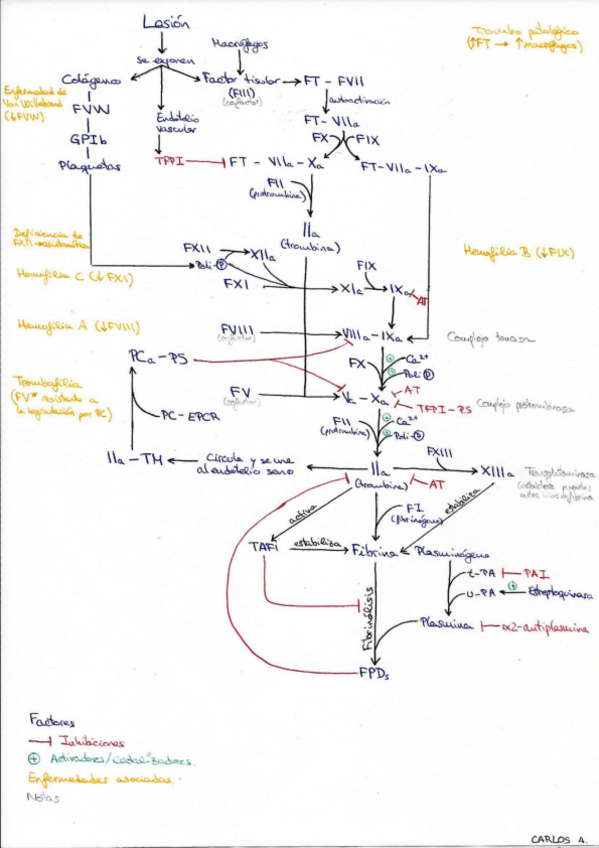 Lesión
Trombo patológico
(↑FT → ↑macrófagos)
Macrófagos
se exponen
Colágeno
Factor tisular
FT - FVII
(FIII)
(cofactor)
Enfermedad de
Von Willebrand
(↓FVW)
FVW
Endotelio
vascular
autoactivación
GPIb
FT - VIIa
FX
FIX
Plaquetas
TFPI
FT - VIIa - Xa
FT-VIIa-IXa
FII
(protrombina)
IIa
(trombina)
Deficiencia de
FXII → asintomática
FXII
XIIa
Poli-Ⓟ
Hemofilia B (↓FIX)
FIX
Hemofilia C (↓FXI)
FXI
XIa
IXa
AT
Hemofilia A (↓FVIII)
FVIII
(cofactor)
VIIIa-IXa
Complejo tenasa
PCa-PS
FX
Ca²⁺
Poli Ⓟ
Trombofilia
(FV* resistente a
la degradación por PC)
FV
(cofactor)
Va - Xa
AT
TFPI-PS
Complejo protrombinasa
PC-EPCR
FII
(protrombina)
Ca²⁺
Poli-Ⓟ
FXIII
IIa-TM
Circula y se une
al endotelio sano
IIa
(trombina)
AT
XIIIa
Transglutaminasa
activa
FI
(fibrinógeno)
estabiliza
TAFI
estabiliza
Fibrina
Plasminógeno
t-PA
PAI
u-PA
Estreptoquinasa
Fibrinólisis
Plasmina
α2-antiplasmina
FPDs
Factores
Inhibiciones
⊕ Activadores/Catalizadores.
Enfermedades asociadas.
Notas
CARLOS A.